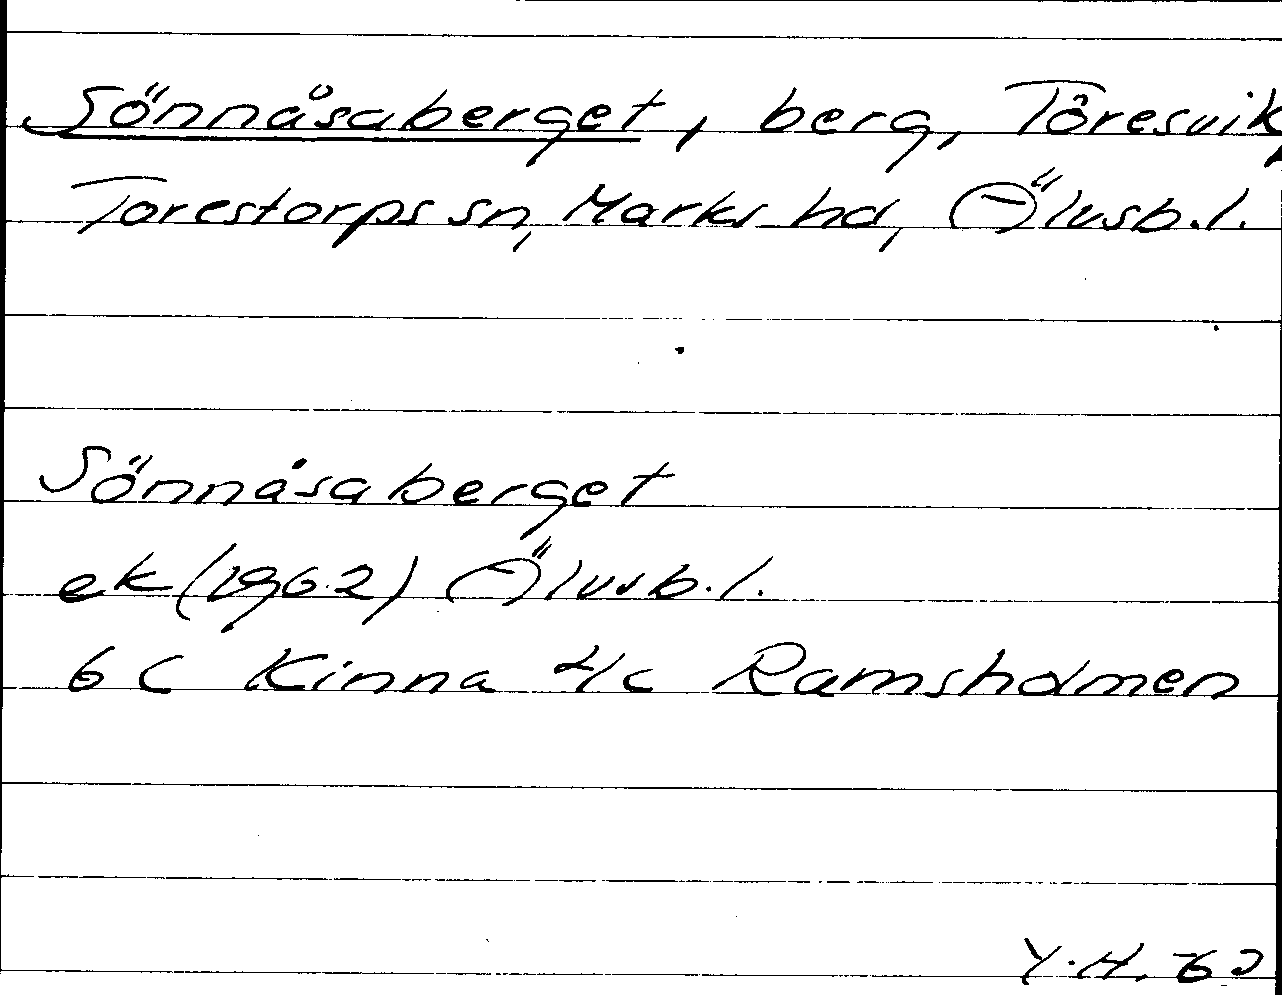 Sönnåsaberget, berg, Töresvik,
Torestorps sn, Marks hd, Älvsb. l.
Sönnåsaberget
ek (1962) Älvsb. l.
6 C Kinna 4/c Ramsholmen
Y.H.